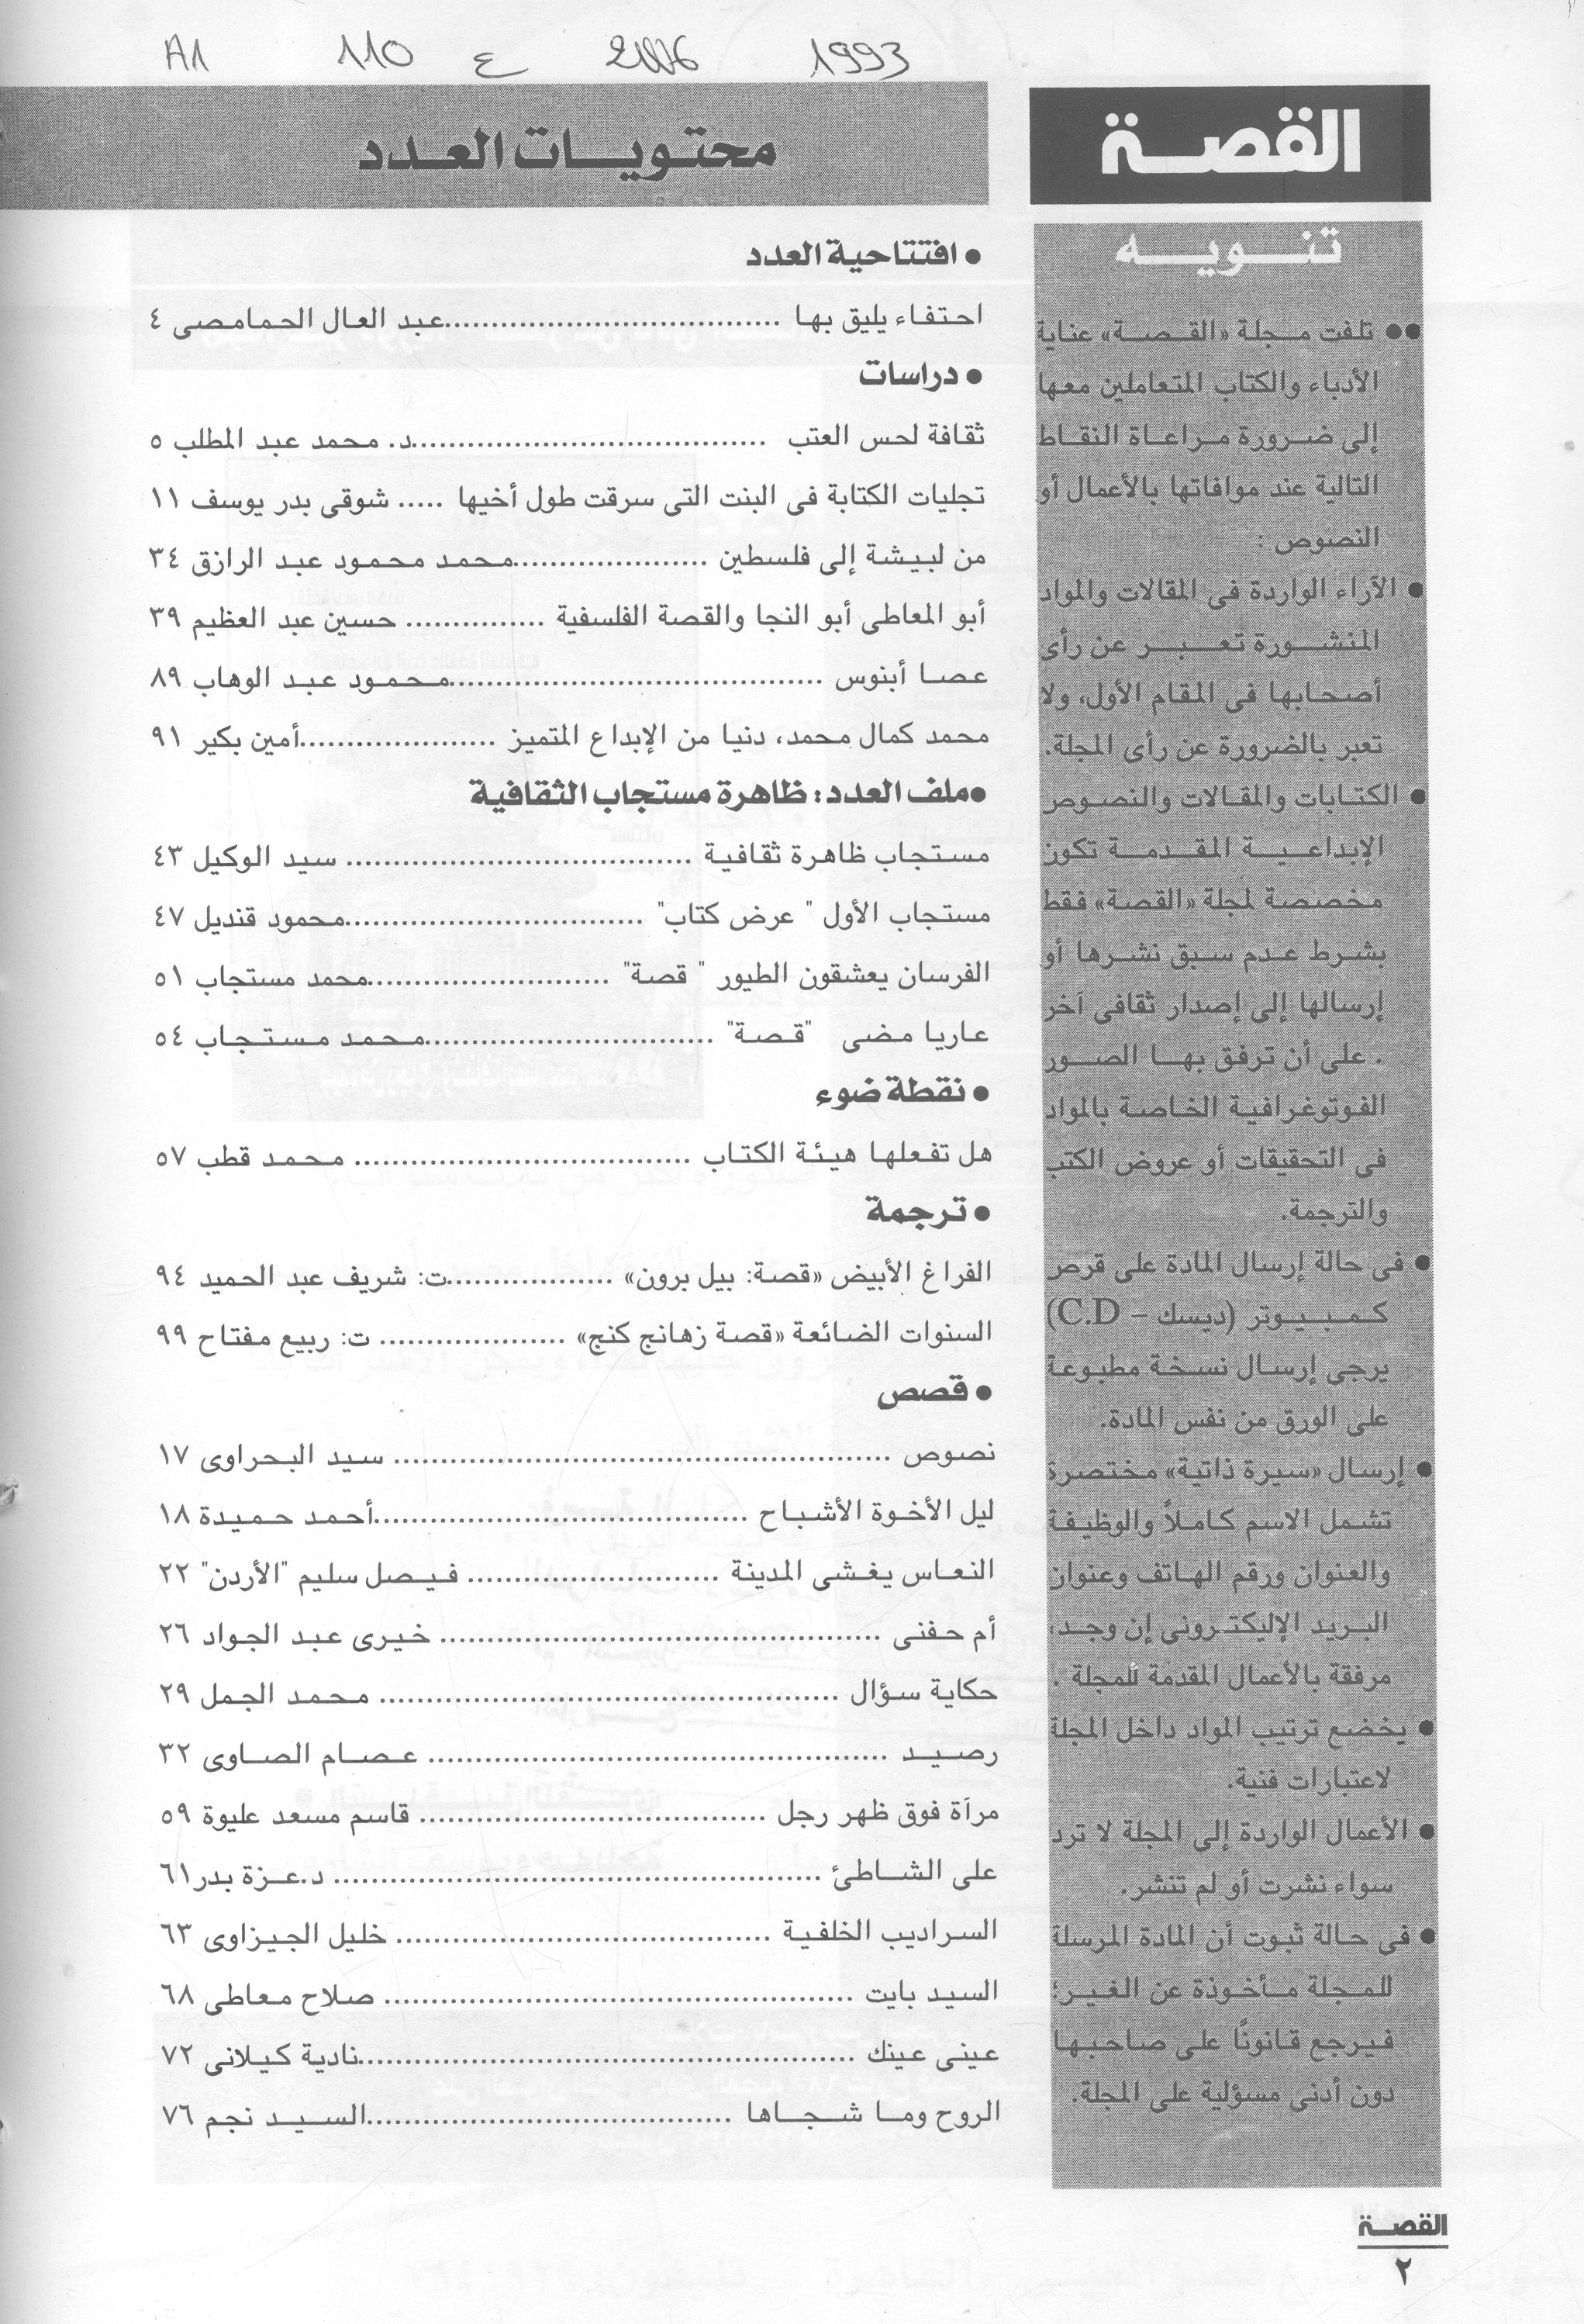 1993 2006 ع 110 A1
القصة
تنويه
●● تلفت مجلة «القصة» عناية
الأدباء والكتاب المتعاملين معها
إلى ضرورة مراعاة النقاط
التالية عند موافاتها بالأعمال أو
النصوص :
● الآراء الواردة فى المقالات والمواد
المنشورة تعبر عن رأى
أصحابها فى المقام الأول، ولا
تعبر بالضرورة عن رأى المجلة.
● الكتابات والمقالات والنصوص
الإبداعية المقدمة تكون
مخصصة لمجلة «القصة» فقط
بشرط عدم سبق نشرها أو
إرسالها إلى إصدار ثقافى آخر
. على أن ترفق بها الصور
الفوتوغرافية الخاصة بالمواد
فى التحقيقات أو عروض الكتب
والترجمة.
● فى حالة إرسال المادة على قرص
كمبيوتر (ديسك – C.D)
يرجى إرسال نسخة مطبوعة
على الورق من نفس المادة.
● إرسال «سيرة ذاتية» مختصرة
تشمل الاسم كاملاً والوظيفة
والعنوان ورقم الهاتف وعنوان
البريد الإليكترونى إن وجد،
مرفقة بالأعمال المقدمة للمجلة .
● يخضع ترتيب المواد داخل المجلة
لاعتبارات فنية.
● الأعمال الواردة إلى المجلة لا ترد
سواء نشرت أو لم تنشر.
● فى حالة ثبوت أن المادة المرسلة
للمجلة مأخوذة عن الغير؛
فيرجع قانونًا على صاحبها
دون أدنى مسؤلية على المجلة.
محتويات العدد
● افتتاحية العدد
احتفاء يليق بها ....................................عبد العال الحمامصى ٤
● دراسات
ثقافة لحس العتب ......................................د. محمد عبد المطلب ٥
تجليات الكتابة فى البنت التى سرقت طول أخيها ..... شوقى بدر يوسف ١١
من لبيشة إلى فلسطين .....................محمد محمود عبد الرازق ٣٤
أبو المعاطى أبو النجا والقصة الفلسفية ............... حسين عبد العظيم ٣٩
عصا أبنوس ........................................محمود عبد الوهاب ٨٩
محمد كمال محمد، دنيا من الإبداع المتميز .....................أمين بكير ٩١
●ملف العدد: ظاهرة مستجاب الثقافية
مستجاب ظاهرة ثقافية ..................................... سيد الوكيل ٤٣
مستجاب الأول " عرض كتاب" ................................محمود قنديل ٤٧
الفرسان يعشقون الطيور " قصة" ..........................محمد مستجاب ٥١
عاريا مضى "قصة" ...............................محمد مستجاب ٥٤
● نقطة ضوء
هل تفعلها هيئة الكتاب .................................... محمد قطب ٥٧
● ترجمة
الفراغ الأبيض «قصة: بيل برون» ..................ت: شريف عبد الحميد ٩٤
السنوات الضائعة «قصة زهانج كنج» .................... ت: ربيع مفتاح ٩٩
● قصص
نصوص ..................................................... سيد البحراوى ١٧
ليل الأخوة الأشباح ........................................أحمد حميدة ١٨
النعاس يغشى المدينة ........................... فيصل سليم "الأردن" ٢٢
أم حفنى ............................................... خيرى عبد الجواد ٢٦
حكاية سؤال ................................................. محمد الجمل ٢٩
رصيد ................................................. عصام الصاوى ٣٢
مرآة فوق ظهر رجل ..................................... قاسم مسعد عليوة ٥٩
على الشاطئ .................................................... د.عزة بدر٦١
السراديب الخلفية ........................................ خليل الجيزاوى ٦٣
السيد بايت .................................................. صلاح معاطى ٦٨
عينى عينك .....................................................نادية كيلانى ٧٢
الروح وما شجاها .......................................السيد نجم ٧٦
القصة
٢